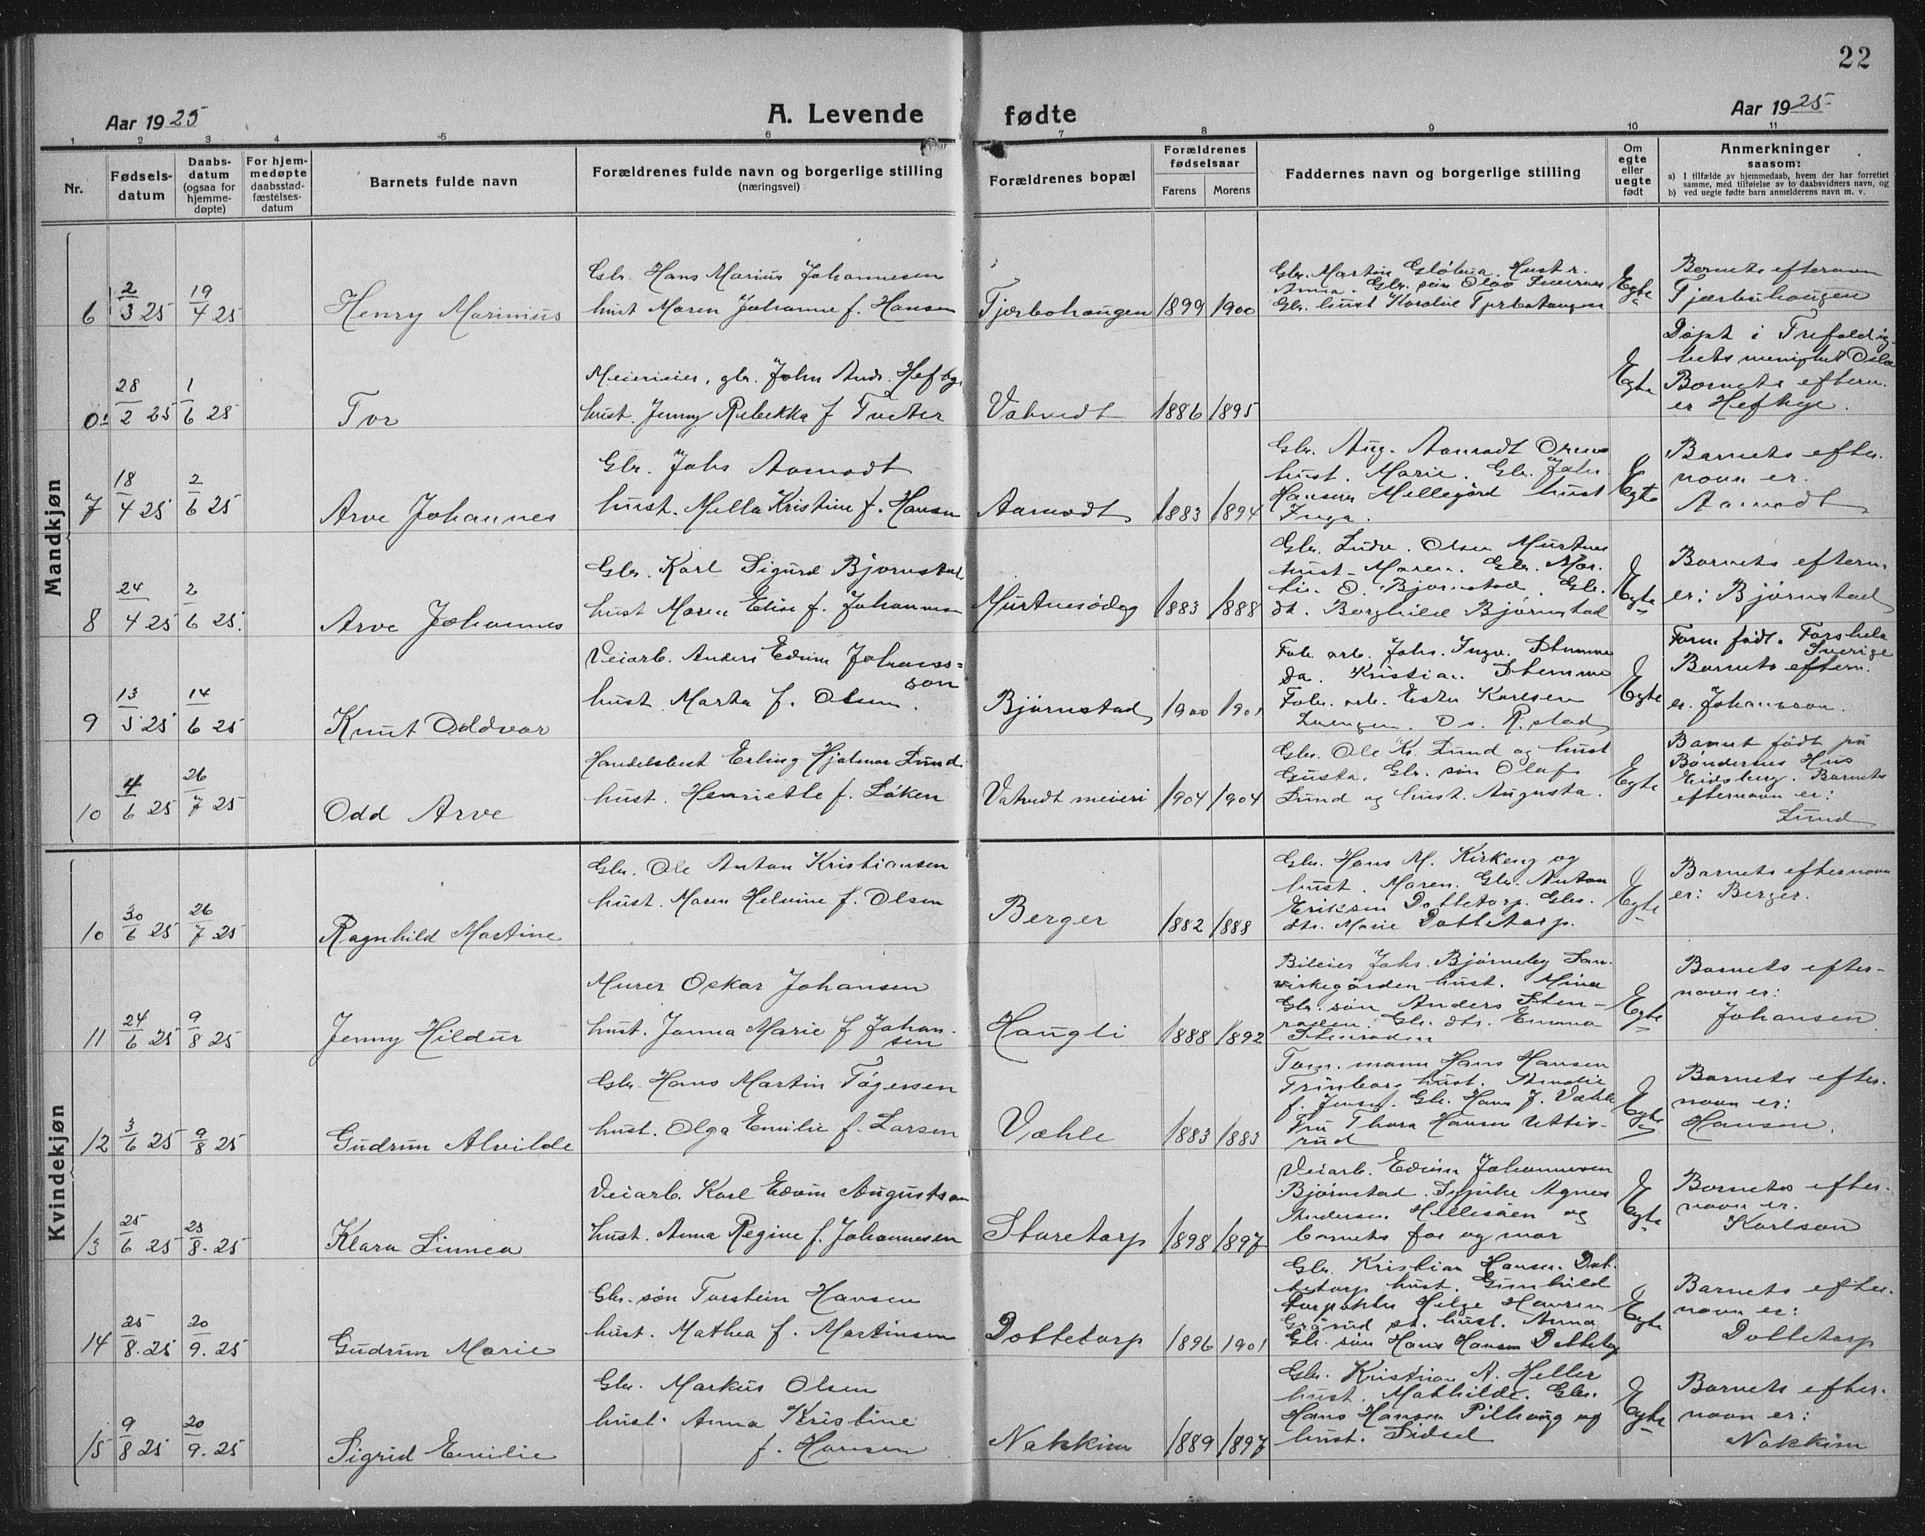 22
Aar 1925
A. Levende fødte
Aar 1925
1 2 3 4 5 6 7 8 9 10 11
Nr.
Fødsels-
datum
Daabs-
datum
(ogsaa for
hjemme-
døpte)
For hjem-
medøpte
daabsstad-
fæstelses-
datum
Barnets fulde navn
Forældrenes fulde navn og borgerlige stilling
(næringsvei)
Forældrenes bopæl
Forældrenes
fødselsaar
Farens Morens
Faddernes navn og borgerlige stilling
Om
egte
eller
uegte
født
Anmerkninger
saasom:
a) I tilfælde av hjemmedaab, hvem der har forrettet
samme, med tilføielse av to daabsvidners navn, og
b) ved uegte fødte barn anmelderens navn m. v.
Mandkjøn
6 2/3 25 19/4 25
Henry Marinius
Gbr. Hans Marius Johannesen
hust Maren Johanne f. Hansen
Tjærbohaugen 1899 1900
Gbr. Martin Hustr.
Anna. Gbr. søn Olav
Gbr. hust
Egte
Barnets efternavn
Tjærbuhaugen
28/2 25 1/6 25
Tor
Meierieier, gbr. John Andr. Heftye
hust. Jenny Rebekka f. Tveter
Vatvedt 1886 1895
Egte
Døpt i Trefoldig-
hets menighet Oslo
Barnets eftern.
er Heftye.
7 18/4 25 2/6 25
Arve Johannes
Gbr. Johs Aamodt
hust. Mella Kristine f. Hansen
Aamodt 1883 1894
Gbr. Aug. Aamodt
hust. Marie. Gbr. Johs
Hansen Mellegård hust
Inga.
Egte
Barnets efter-
navn er.
Aamodt
8 24/4 25 2/6 25.
Arve Johannes
Gbr. Karl Sigurd Bjørnstad
hust Maren Elise f. Johannesen
Murtnesødeg 1883 1888
Gbr. Olsen Murtnes
hust. Maren. Gbr. Mar-
tin O. Bjørnstad. Gbr.
dt. Borghild Bjørnstad
Egte
Barnets eftern.
er: Bjørnstad
9 13/5 25 14/6 25
Knut Oddvar
Veiarb. Anders Edvin Johans-
son
hust. Marta f. Olsen.
Bjørnstad 1900 1901
Fab. arb. Johs. Ingv. Stemme
Da. Kristian Stemme
Fabr. arb. Ester Karlsen
Egte
født. Forshela
Sverige
Barnets eftern.
er. Johansson.
10 4/6 25 26/7 25
Odd Arve
Handelsbest Erling Hjalmar Lund
hust. Henriette f. Løken
Vatvedt meieri 1904 1904
Gbr. Ole Kr. Lund og hust
Gusta. Gbr. søn Olaf
Lund og hust. Augusta.
Egte
Barnet født på
Bøndernes Hus
Eidsberg. Barnets
efternavn er:
Lund
Kvindekjøn
10 30/6 25 26/7 25
Ragnhild Martine
Gbr. Ole Anton Kristiansen
hust. Maren Helvine f. Olsen
Berger 1882 1888
Gbr. Hans M. Kirkeng og
hust. Maren. Gbr. Anton
Eriksen Dottetorp. Gbr.
dtr. Marie Dottetorp.
Egte
Barnets efternavn
er: Berger.
11 24/6 25 9/8 25
Jenny Hildur
Murer Oskar Johansen
hust. Janna Marie f Johan-
sen
Haugli 1888 1892
Bileier Johs. Bjørneby
hust. Mina
Gbr. søn Anders Sten-
røden. Gbr. dtr. Emma
Stenrøden
Egte
Barnets efter-
navn er:
Johansen
12 3/6 25 9/8 25
Gudrun Alvilde
Gbr. Hans Martin Tøgersen
hust. Olga Emilie f. Larsen
Væhle 1883 1883
Tøm. mann Hans Hansen
Trinborg hust. Amalie
f. Jensen. Gbr. Hans J. Væhle
Fru Thora Hansen Uttis-
rud
Egte
Barnets efter-
navn er:
Hansen.
13 25/6 25 23/8. 25
Klara Linnea
Veiarb. Karl Edvin Augustson
hust. Anna Regine f. Johannesen
Storetorp 1898 1897
Veiarb. Edvin Johannesen
Bjørnstad. Agnes
Andersen Hellesøen og
barnets far og mor
Egte
Barnets efter-
navn er.
Karlson
14 25/8. 25 20/9. 25
Gudrun Marie
Gbr. søn Torstein Hansen
hust. Mathea f. Martinsen
Dottetorp 1896 1901
Gbr. Kristian Hansen Dot-
tetorp hust. Gunhild
Helge Hansen
hust. Anna
Gbr. søn Hans Hansen Dottetorp
Egte
Barnets efter-
navn er:
Dottetorp
15 9/8 25 20/9. 25
Sigrid Emilie
Gbr. Markus Olsen
hust. Anna Kristine
f. Hansen
Nakkim 1889 1897
Gbr. Kristian A. Heller
hust. Mathilde. Gbr.
Hans Hansen Pilhaug og
hust. Sidsel
Egte
Barnets efter-
navn er:
Nakkim